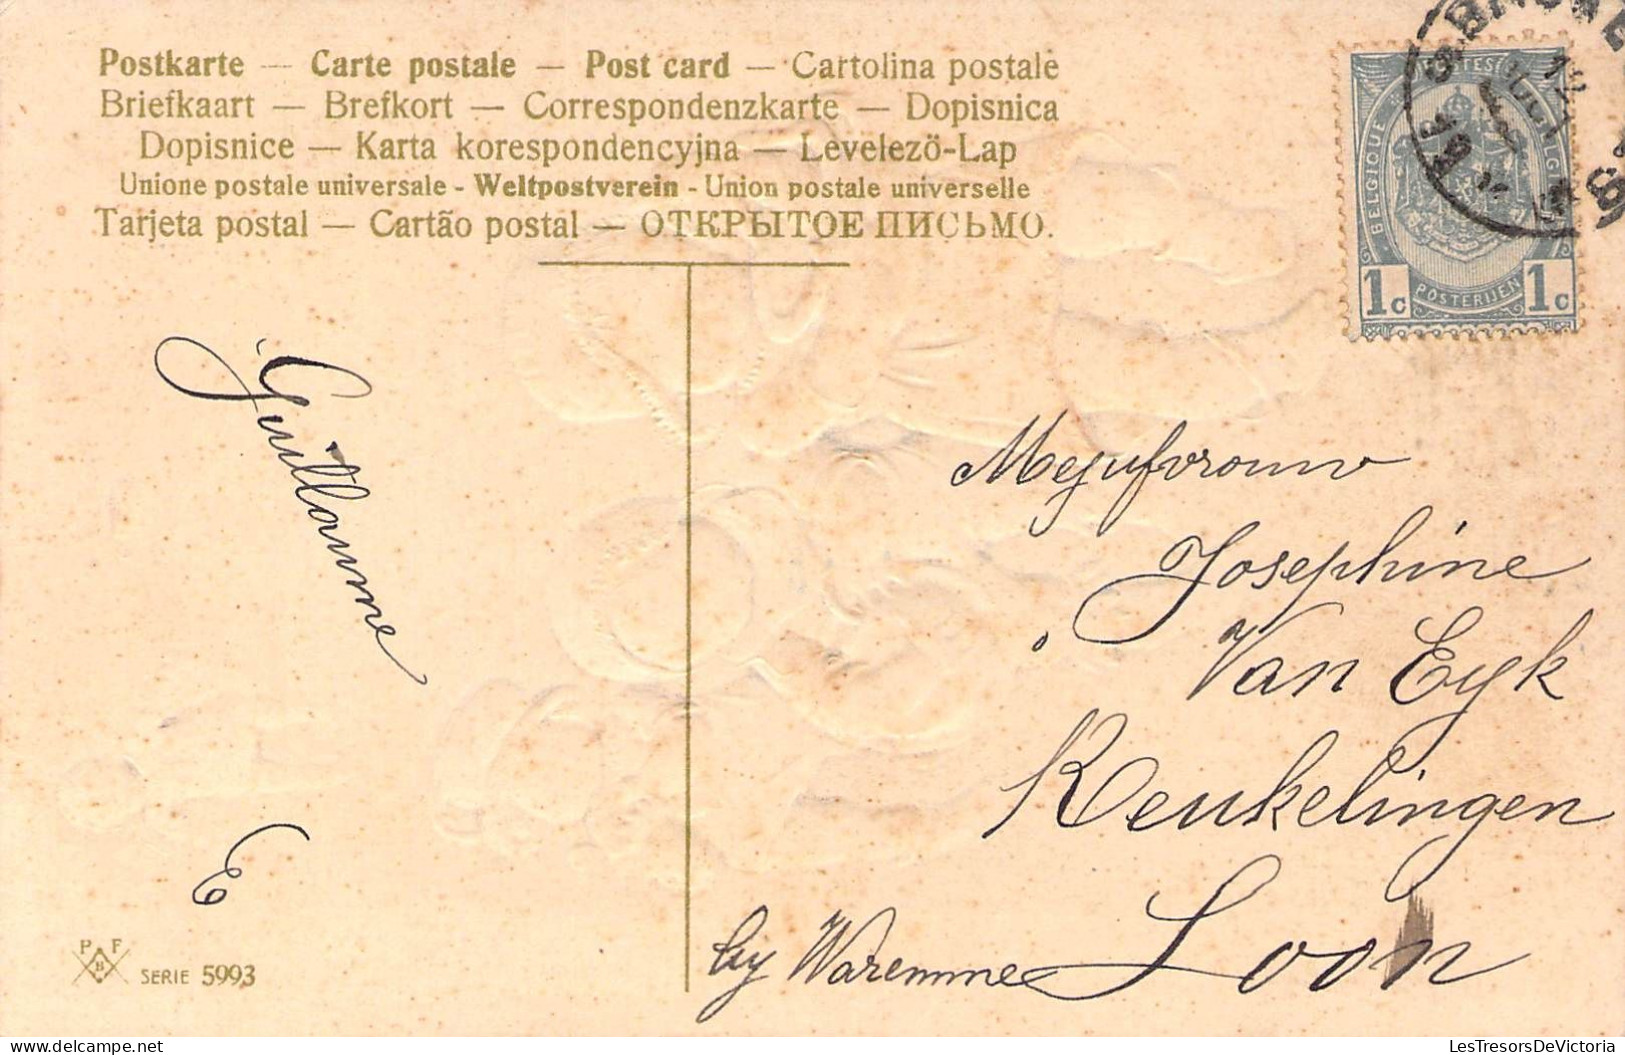 Postkarte — Carte postale — Post card — Cartolina postale
Briefkaart — Brefkort — Correspondenzkarte — Dopisnica
Dopisnice — Karta korespondencyjna — Levelezö-Lap
Unione postale universale - Weltpostverein - Union postale universelle
Tarjeta postal — Cartão postal — ОТКРЫТОЕ ПИСЬМО.
BELGIQUE
POSTERIJEN
1c 1c
Guillaume
Mejufvrouw
Josephine
Van Eyk
Keukelingen
by Waremme Loon
E
P F
B
SERIE 5993
LesTresorsDeVictoria
https://www.delcampe.net